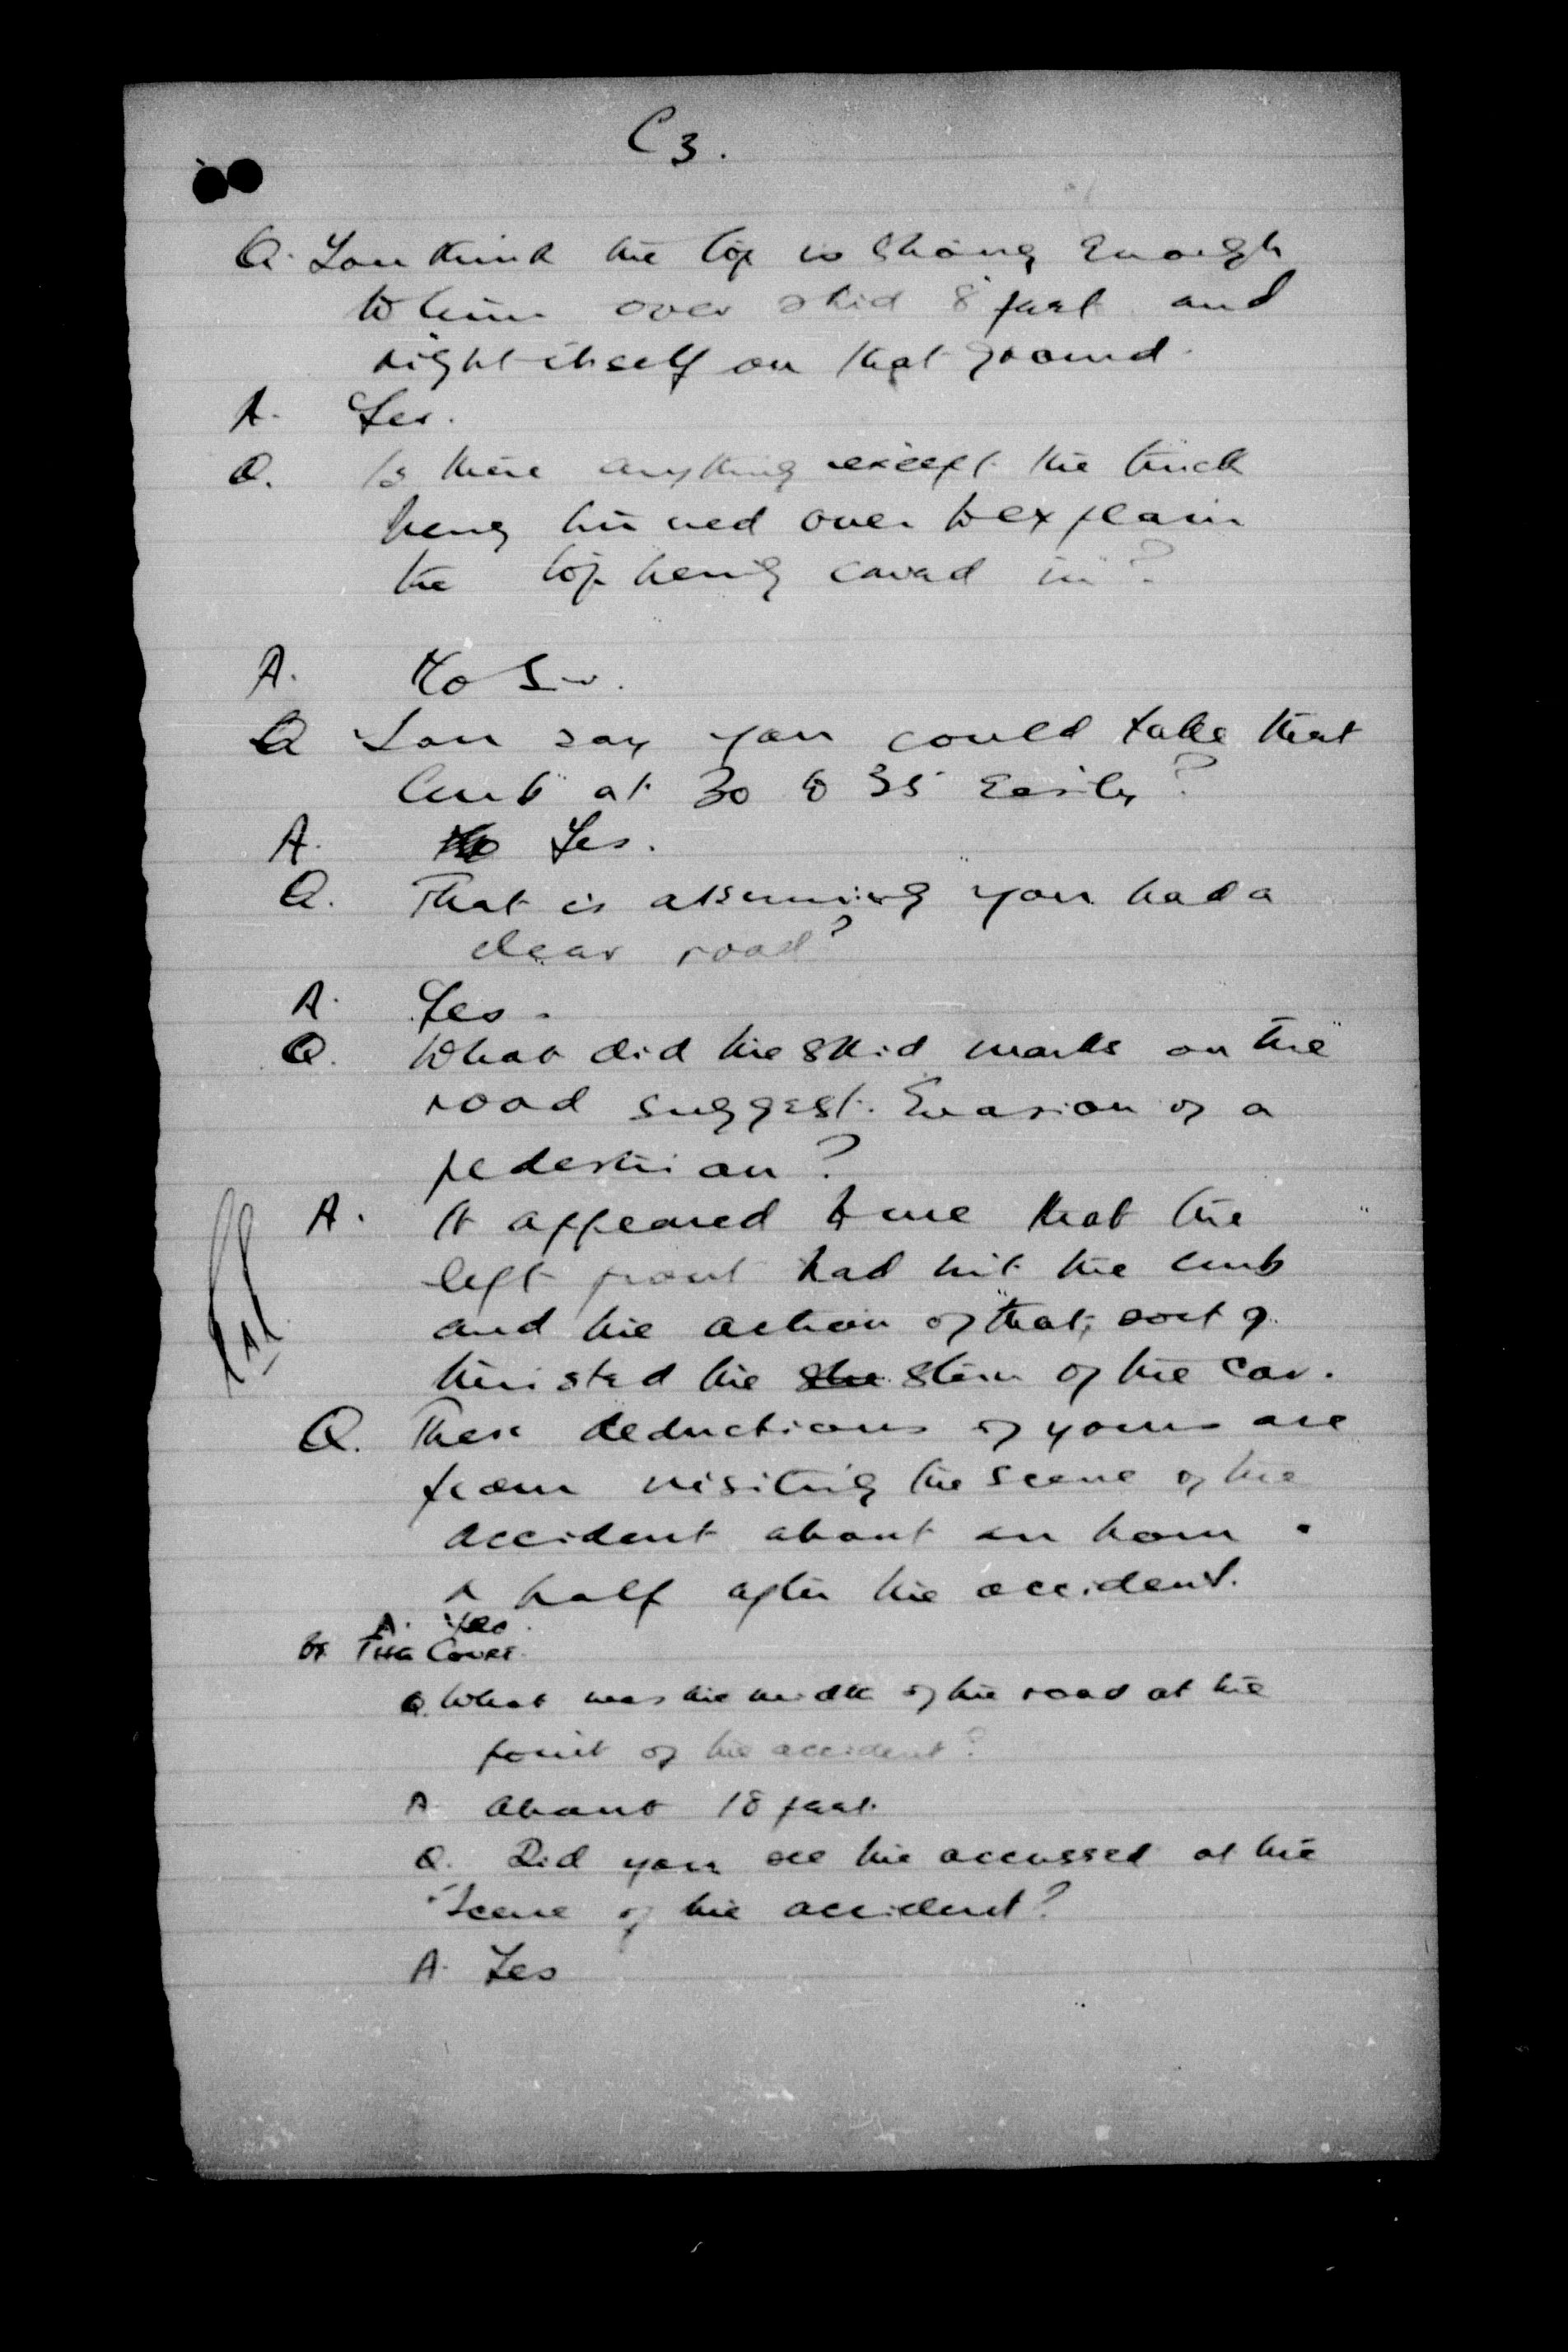 C3.
Q. You think the top is strong enough
to turn over skid 8 feet and
right itself on that ground.
A. Yes.
Q. Is there anything except the truck
being turned over to explain
the top being caved in?
A. No Sir.
Q You say you could take that
curb at 30 to 35 easily?
A. No Yes.
Q. That is assuming you had a
clear road?
A. Yes.
Q. What did the skid marks on the
road suggest. Evasion of a
pedestrian?
A. It appeared to me that the
left front had hit the curb
and the action of that, sort of
twisted the ste stern of the car.
Q. These deductions of yours are
from visiting the scene of the
accident about an hour
a half after the accident.
A. Yes.
By The Court.
Q. What was the width of the road at the
point of the accident?
A. About 18 feet.
Q. Did you see the accussed at the
scene of the accident?
A. Yes